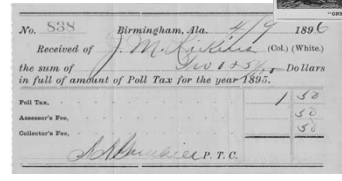 No. 838 Birmingham, Ala. 4/9 1896
Received of J. M. (Col.) (White.)
the sum of Two & 50/ Dollars
in full of amount of Poll Tax for the year 1895.
Poll Tax, 1 50
Assessor's Fee, 50
Collector's Fee, 50
P. T. C.